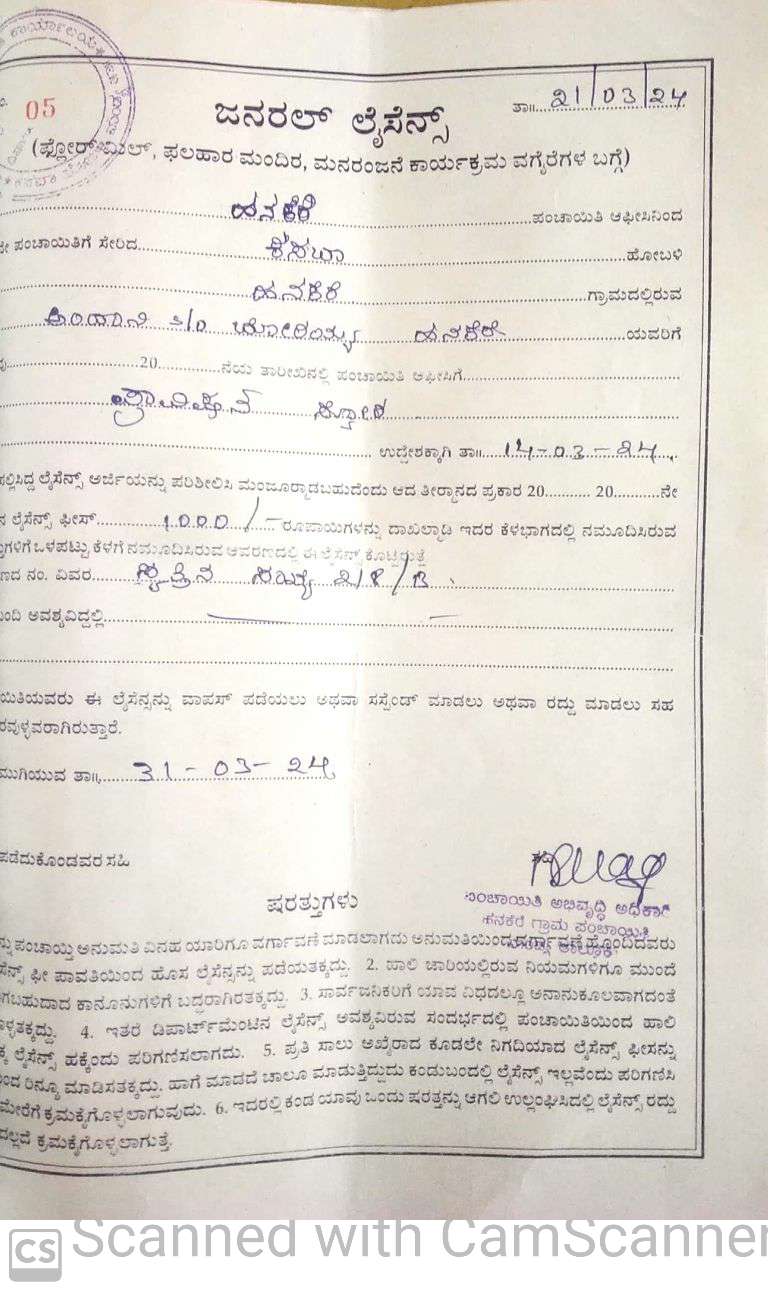 05
ತಾ॥ 21/03/24
ಜನರಲ್ ಲೈಸೆನ್ಸ್
(ಫ್ಲೋರ್ ಮಿಲ್, ಫಲಹಾರ ಮಂದಿರ, ಮನರಂಜನೆ ಕಾರ್ಯಕ್ರಮ ವಗೈರೆಗಳ ಬಗ್ಗೆ)
ಹನಕೆರೆ ಪಂಚಾಯಿತಿ ಆಫೀಸಿನಿಂದ
ಪಂಚಾಯಿತಿಗೆ ಸೇರಿದ ಕಸಬಾ ಹೋಬಳಿ
ಹನಕೆರೆ ಗ್ರಾಮದಲ್ಲಿರುವ
S/o ಹನಕೆರೆ ಯವರಿಗೆ
20 ನೆಯ ತಾರೀಖಿನಲ್ಲಿ ಪಂಚಾಯಿತಿ ಆಫೀಸಿಗೆ
ಪ್ರಾವಿಷನ್ ಸ್ಟೋರ್
ಉದ್ದೇಶಕ್ಕಾಗಿ ತಾ॥ 14-03-24
ಸಲ್ಲಿಸಿದ್ದ ಲೈಸೆನ್ಸ್ ಅರ್ಜಿಯನ್ನು ಪರಿಶೀಲಿಸಿ ಮಂಜೂರ್‍ಮಾಡಬಹುದೆಂದು ಆದ ತೀರ್ಮಾನದ ಪ್ರಕಾರ 20 20 ನೇ
ಲೈಸೆನ್ಸ್ ಫೀಸ್ 1000/- ರೂಪಾಯಿಗಳನ್ನು ದಾಖಲ್ಮಾಡಿ ಇದರ ಕೆಳಭಾಗದಲ್ಲಿ ನಮೂದಿಸಿರುವ
ಒಳಪಟ್ಟು ಕೆಳಗೆ ನಮೂದಿಸಿರುವ ಆವರಣದಲ್ಲಿ ಈ ಲೈಸೆನ್ಸ್ ಕೊಟ್ಟಿರುತ್ತೆ
ನಂ. ವಿವರ ಸ್ವತ್ತಿನ ಸಂಖ್ಯೆ 218/B
ಅವಶ್ಯವಿದ್ದಲ್ಲಿ
ಈ ಲೈಸೆನ್ಸನ್ನು ವಾಪಸ್ ಪಡೆಯಲು ಅಥವಾ ಸಸ್ಪೆಂಡ್ ಮಾಡಲು ಅಥವಾ ರದ್ದು ಮಾಡಲು ಸಹ
ರವುಳ್ಳವರಾಗಿರುತ್ತಾರೆ.
ಮುಗಿಯುವ ತಾ॥ 31-03-24
ಪಡೆದುಕೊಂಡವರ ಸಹಿ
ಪಂಚಾಯಿತಿ ಅಭಿವೃದ್ಧಿ ಅಧಿಕಾರಿ
ಹನಕೆರೆ ಗ್ರಾಮ ಪಂಚಾಯಿತಿ
ಷರತ್ತುಗಳು
ಪಂಚಾಯ್ತಿ ಅನುಮತಿ ವಿನಹ ಯಾರಿಗೂ ವರ್ಗಾವಣೆ ಮಾಡಲಾಗದು ಅನುಮತಿಯಿಂದ ವರ್ಗಾವಣೆ ಹೊಂದಿದವರು
ಫೀ ಪಾವತಿಯಿಂದ ಹೊಸ ಲೈಸೆನ್ಸನ್ನು ಪಡೆಯತಕ್ಕದ್ದು. 2. ಹಾಲಿ ಜಾರಿಯಲ್ಲಿರುವ ನಿಯಮಗಳಿಗೂ ಮುಂದೆ
ಕಾನೂನುಗಳಿಗೆ ಬದ್ಧರಾಗಿರತಕ್ಕದ್ದು. 3. ಸಾರ್ವಜನಿಕರಿಗೆ ಯಾವ ವಿಧದಲ್ಲೂ ಅನಾನುಕೂಲವಾಗದಂತೆ
4. ಇತರೆ ಡಿಪಾರ್ಟ್‌ಮೆಂಟಿನ ಲೈಸೆನ್ಸ್ ಅವಶ್ಯವಿರುವ ಸಂದರ್ಭದಲ್ಲಿ ಪಂಚಾಯಿತಿಯಿಂದ ಹಾಲಿ
ಲೈಸೆನ್ಸ್ ಹಕ್ಕೆಂದು ಪರಿಗಣಿಸಲಾಗದು. 5. ಪ್ರತಿ ಸಾಲು ಅಖೈರಾದ ಕೂಡಲೇ ನಿಗದಿಯಾದ ಲೈಸೆನ್ಸ್ ಫೀಸನ್ನು
ರಿನ್ಯೂ ಮಾಡಿಸತಕ್ಕದ್ದು. ಹಾಗೆ ಮಾಡದೆ ಚಾಲೂ ಮಾಡುತ್ತಿದ್ದುದು ಕಂಡುಬಂದಲ್ಲಿ ಲೈಸೆನ್ಸ್ ಇಲ್ಲವೆಂದು ಪರಿಗಣಿಸಿ
ಮೇರೆಗೆ ಕ್ರಮಕೈಗೊಳ್ಳಲಾಗುವುದು. 6. ಇದರಲ್ಲಿ ಕಂಡ ಯಾವು ಒಂದು ಷರತ್ತನ್ನು ಆಗಲಿ ಉಲ್ಲಂಘಿಸಿದಲ್ಲಿ ಲೈಸೆನ್ಸ್ ರದ್ದು
ಕ್ರಮಕೈಗೊಳ್ಳಲಾಗುತ್ತೆ.
CS Scanned with CamScanner